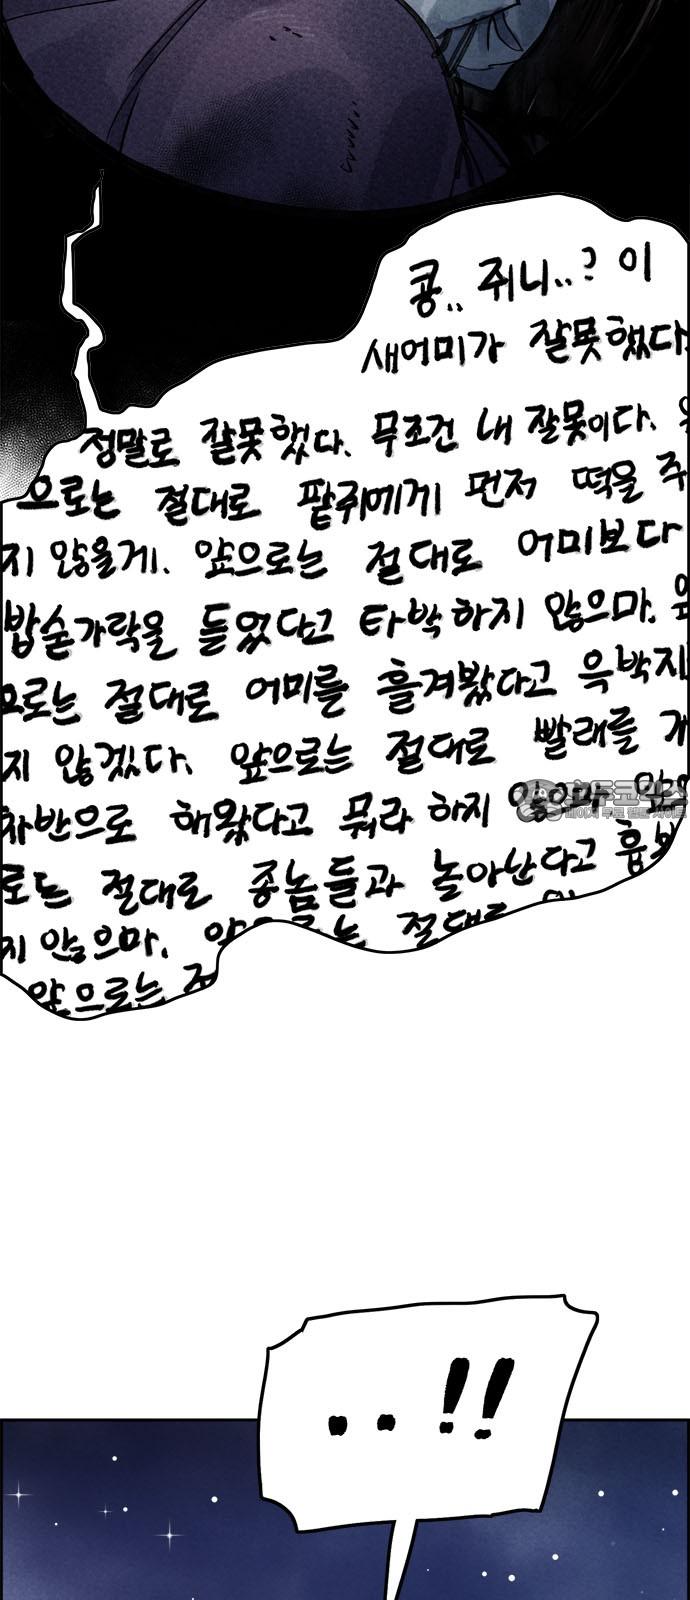 콩.. 쥐니..? 이
새어미가 잘못했다.
정말로 잘못했다. 무조건 내 잘못이다. 앞
으로는 절대로 팥쥐에게 먼저 떡을 주
지 않을게. 앞으로는 절대로 어미보다
밥숟가락을 들었다고 타박하지 않으마. 앞
으로는 절대로 어미를 흘겨봤다고 윽박지
지 않겠다. 앞으로는 절대로 빨래를 개
차반으로 해왔다고 뭐라 하지 않으마 앞으
로는 절대로 종놈들과 놀아난다고 흉보
지 않으마. 앞으로는 절대로
앞으로는 절
..!!